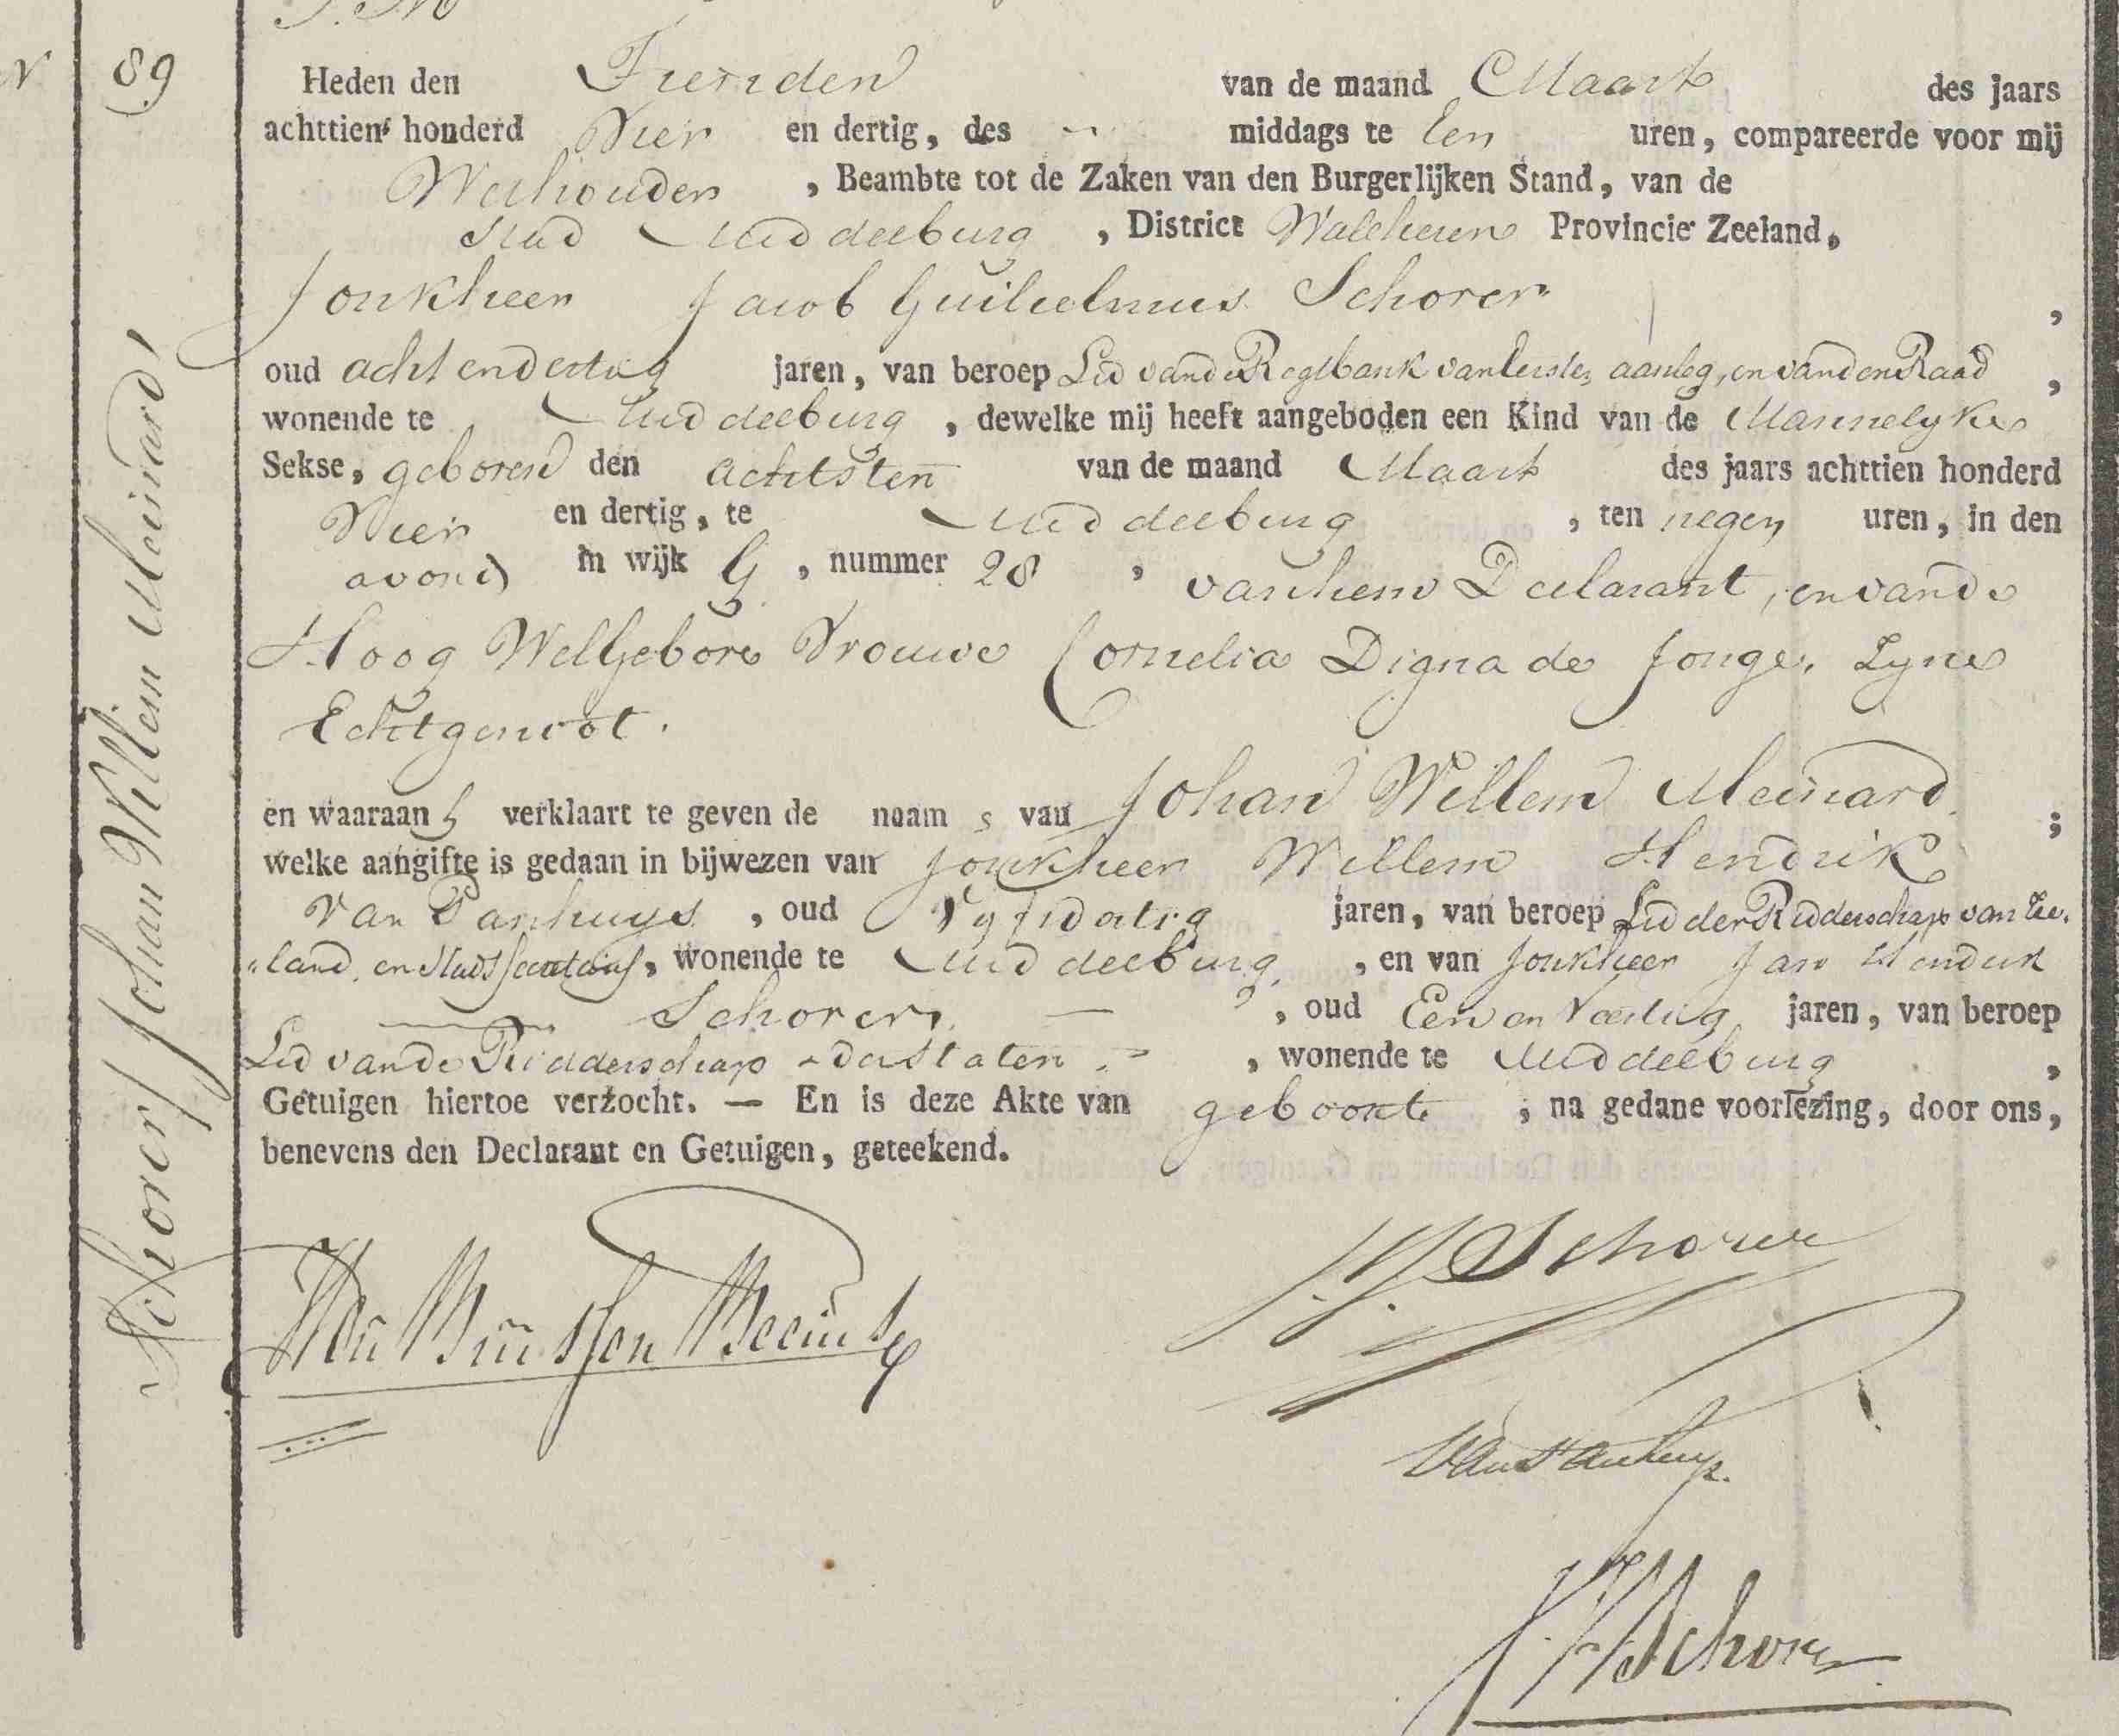 N 89
Heden den Tienden van de maand Maart des jaars
achttien honderd Vier en dertig, des - middags te Een uren, compareerde voor mij
Wethouder, Beambte tot de Zaken van den Burgerlijken Stand, van de
Stad Middelburg, District Walcheren Provincie Zeeland,
Jonkheer Jacob Guilielmus Schorer,
oud acht en dertig jaren, van beroep Lid van de Regtbank van Eersten aanleg, en van den Raad,
wonende te Middelburg, dewelke mij heeft aangeboden een Kind van de Mannelyke
Sekse, geboren den achtsten van de maand Maart des jaars achttien honderd
Vier en dertig, te Middelburg, ten negen uren, in den
avond in wijk G, nummer 28, van hem Declarant, en van de
Hoog WelGebore Vrouwe Cornelia Digna de Jonge, Zyne
Echtgenoot.
en waaraan hy verklaart te geven de naam s van Johan Willem Meinard;
welke aangifte is gedaan in bijwezen van Jonkheer Willem Hendrik
Van Panhuys, oud Vyfidertig jaren, van beroep Lid der Ridderschap van Zee-
land, en Stads Secretaris, wonende te Middelburg, en van Jonkheer Jan Hendrik
Schorer, oud Een en Veertig jaren, van beroep
Lid van de Ridderschap - der Staten, wonende te Middelburg,
Getuigen hiertoe verzocht. — En is deze Akte van geboorte, na gedane voorlezing, door ons,
benevens den Declarant en Getuigen, geteekend.
Schorer / Johan Willem Meinard /
J.G. Schorer
Van Panhuys.
J.H. Schorer